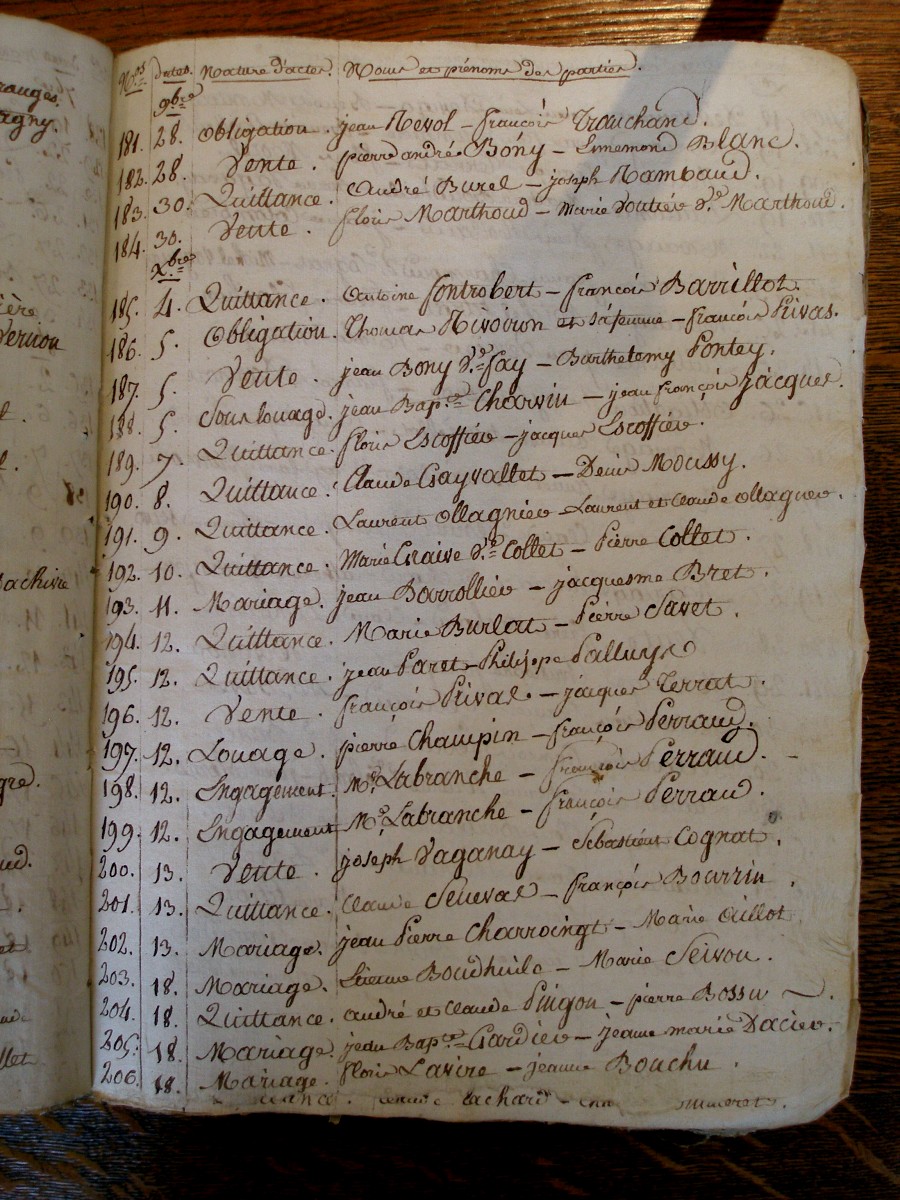 ranges.
agny.
ière
Vernon
achivie
gre.
ud.
llet
N.os dates. Nature d'actes. Noms et prénoms des parties.
9bre
181. 28. Obligation. jean Revol – françois Trouchand.
182. 28. Vente. pierre andré Bóny – Limemond Blanc.
183. 30. Quittance. André Burel – joseph Rambaud.
184. 30. Vente. floris Marthoud – Marie Voutiév v.e Marthoud.
X.bre
185. 4. Quittance. Antoine fontrobert – françois Barrillot.
186. 5. Obligation. Thomas Rivoiron et sa femme – françois Privas.
187. 5. Vente. jean Bony d.t fay – Barthelemy Pontey.
188. 5. Souslouage. jean Bap.te Charvin – jean françois jacques.
189. 7. Quittance. floris Escoffiév – jacques Escoffiév.
190. 8. Quittance. Claude Gayvallet – Denis Moussy.
191. 9. Quittance. Laurent Ollagniev – Laurent et Claude Ollagniev.
192. 10. Quittance. Marie Graive v.e Collet – Pierre Collet.
193. 11. Mariage. jean Barrolliév – jacquesme Bret.
194. 12. Quittance. Marie Burlat – Pierre Savet.
195. 12. Quittance. jean Paret – Philippe Palluys
196. 12. Vente. françois Prival – jacques Terrat.
197. 12. Louage. pierre Champin – françois Perraud.
198. 12. Engagement. M.r Labranche – françois Perraud.
199. 12. Engagement M.r Labranche – françois Perraud.
200. 13. Vente. joseph Vaganay – Sébastient Cognat.
201. 13. Quittance. Claude Seneval – françois Bourrin.
202. 13. Mariage. jean Pierre Charroingt – Marie Oillot
203. 18. Mariage. Etienne Boudhuile – Marie Seivou.
204. 18. Quittance. André et Claude Pingon – pierre Bossu.
205. 18. Mariage. jean Bap.te Gardiév – jeanne marie Daciev.
206. 18. Mariage. floris Lavire – jeanne Bouchu.
Lachard